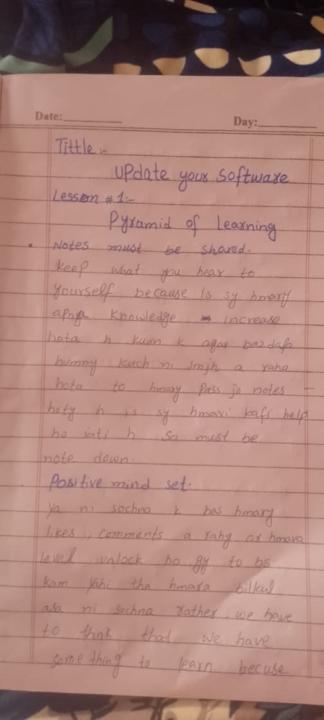 Date:
Day:
Tittle :-
UPdate your Software
Lesson # 1:-
Pyramid of learning
Notes must be shared.
keep what you hear to
yourself because is sy hmary
apna knowledge increase
hota h kuin k agar bazdafa
hummy kuch ni smjh a raha
hota to hmay Pass jo notes
hoty h is sy hmari kafi help
ho jati h So must be
note down.
Positive mind set.
ya ni sochna k bas hmary
likes, comments a rahy or hmara
level unlock ho gy to bs
kam yahi tha hmara bilkul
asa ni sochna rather we have
to think that we have
something to learn becuse